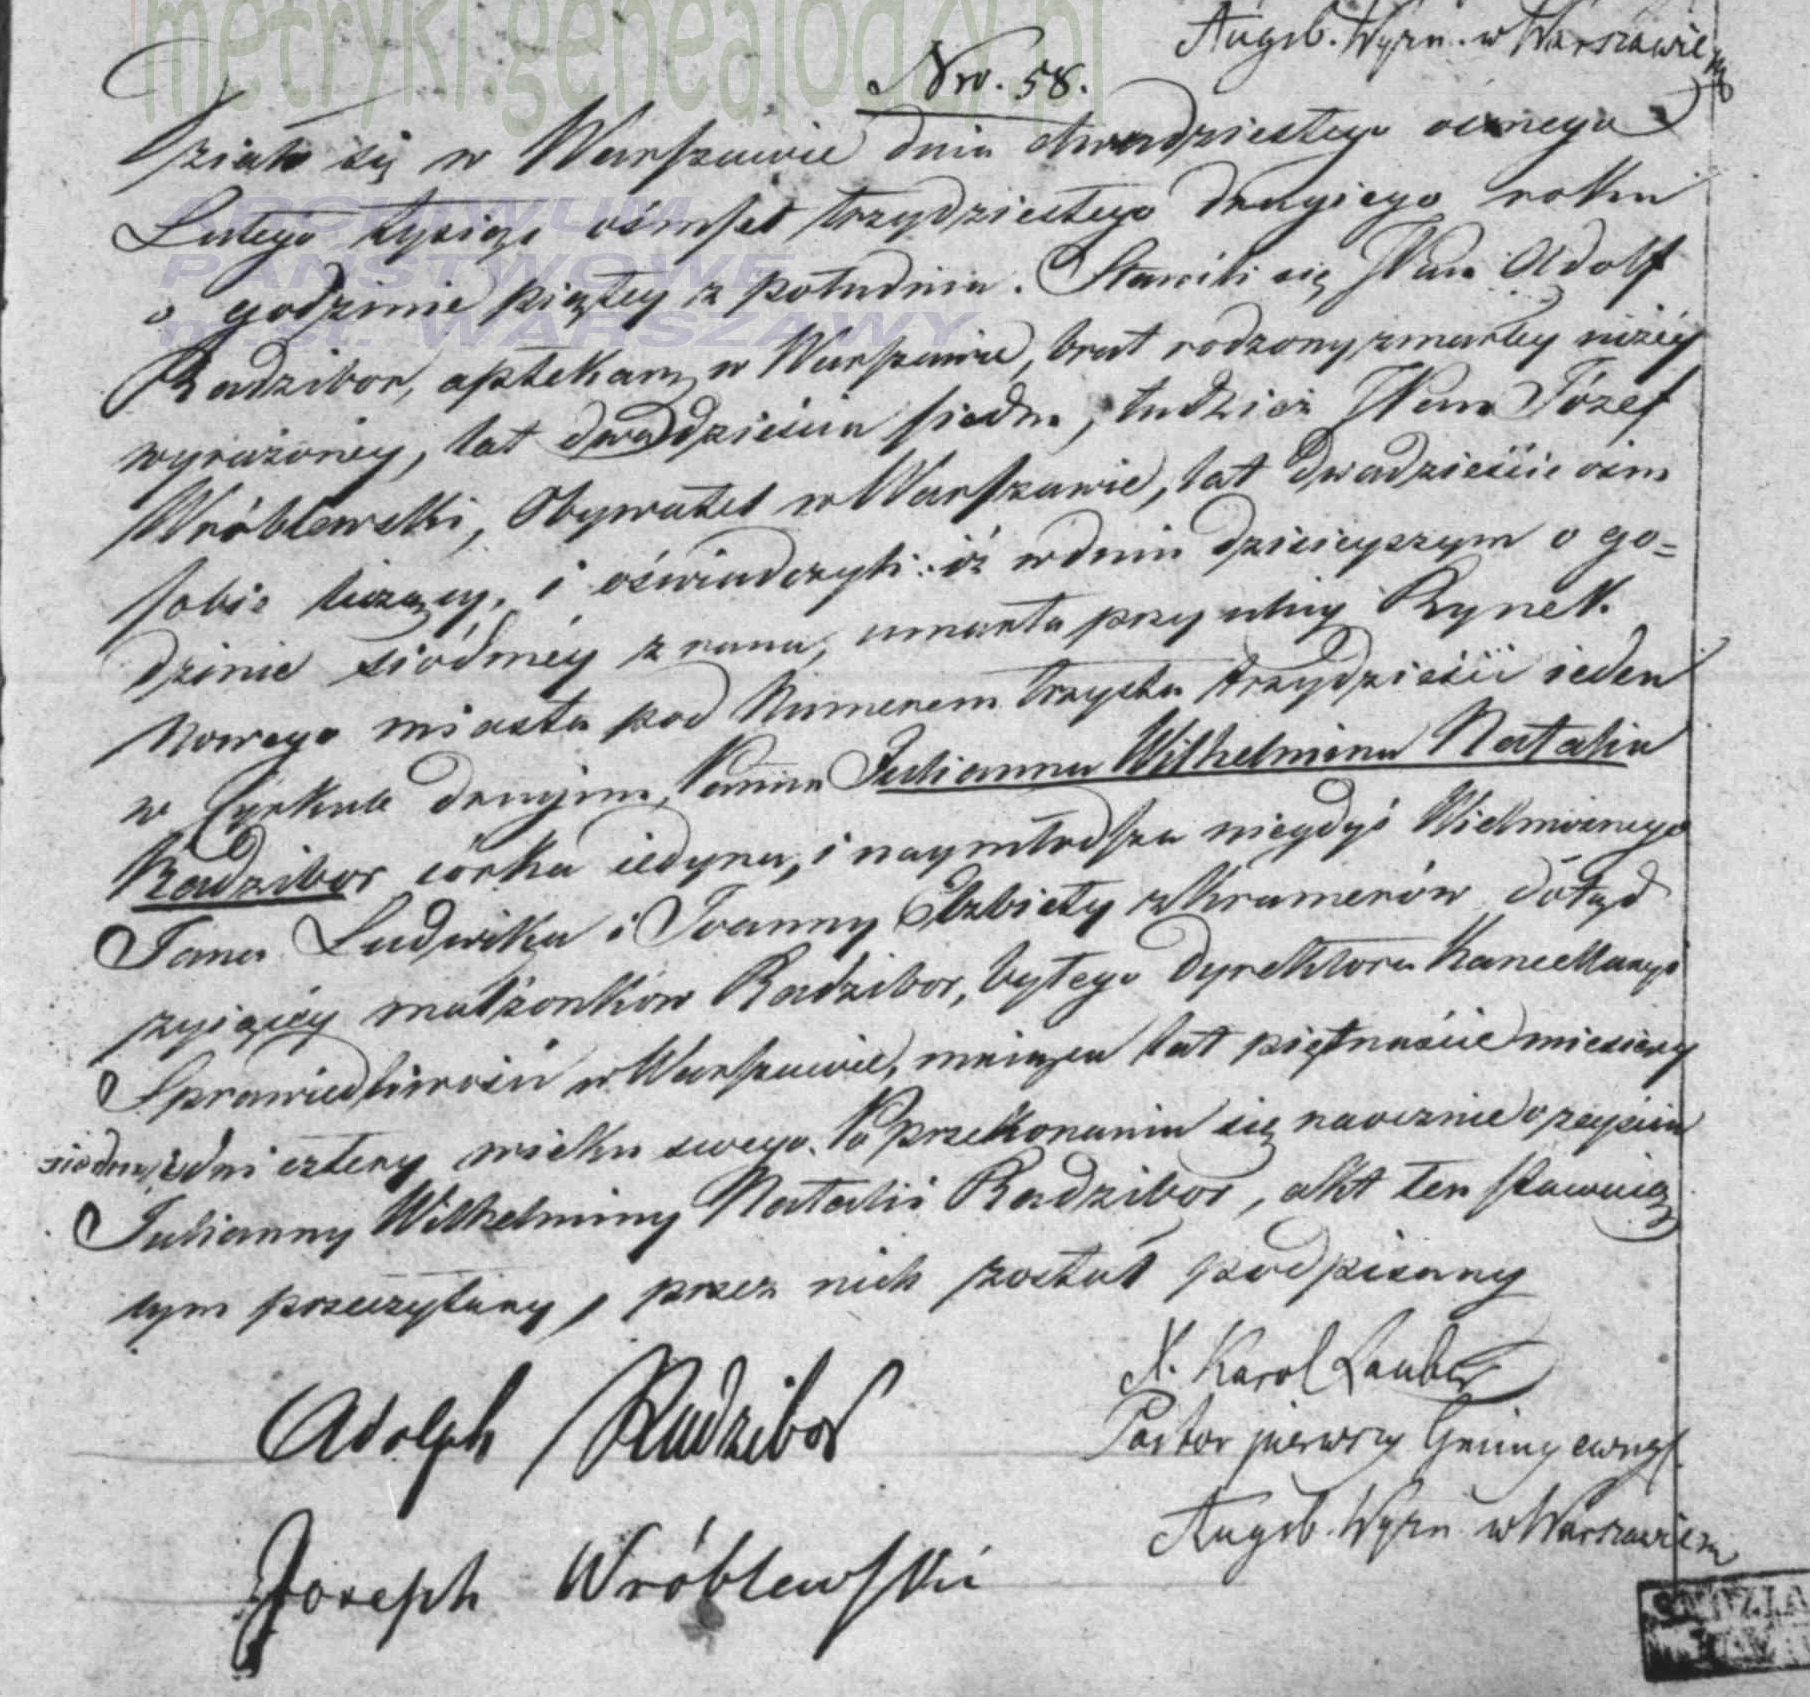 metryki.genealodzy.pl
Augsb. Wyzn. w Warszawie
Nro. 58.
Działo się w Warszawie dnia dwudziestego osmego
Lutego tysiąc ośmset trzydziestego drugiego roku
o godzinie piątey z południa. Stawili się JPan Adolf
Radzibor, aptekarz w Warszawie, brat rodzony zmarłey niżéy
wyrażoney, lat dwadzieścia siedm, tudzież JPan Józef
Wróblewski, Obywatel w Warszawie, lat dwadzieście ośm
sobie liczący, i oświadczyli: iż w dniu dzisieyszym o go=
dzinie siódméy z rana, umarła przy ulicy Rynek
nowego miasta pod Numerem trzysta trzydzieści ieden
w Cyrkule drugim, Panna Julianna Wilhelmina Natalia
Radzibor córka iedyna, i naymłodsza niegdyś Wielmożnego
Jana Ludwika i Joanny Elżbiety z Kramerów dotąd
żyiącéy małżonków Radzibor, byłego Dyrektora Kancellaryi
Sprawiedliwości w Warszawie, maiąca lat piętnaście miesięcy
siedm, i dni cztery wieku swego. Po przekonaniu się naocznie o zeyściu
Julianny Wilhelminy Natalii Radzibor, akt ten stawaią
cym przeczytany, przez nich został podpisany
Adolph Radzibor
X. Karol Lauber
Pastor pierwszy Gminy ewag.
Augsb. Wyzn. w Warszawie
Joseph Wróblewski
ARCHIWUM
PAŃSTWOWE
m.st. WARSZAWY